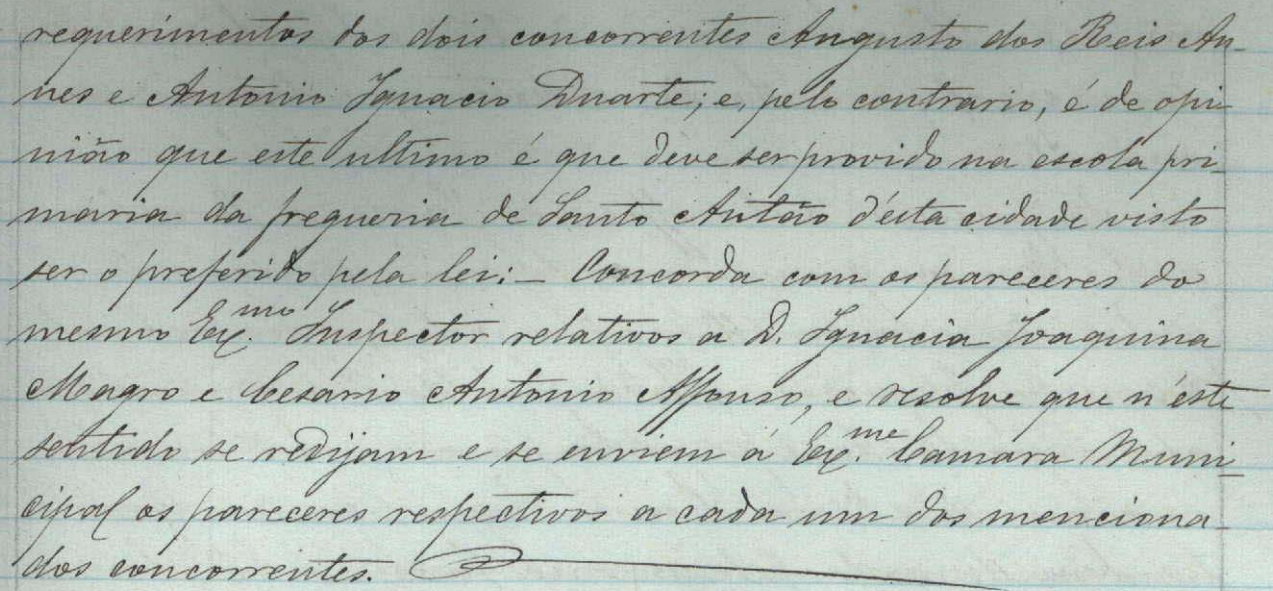 requerimentos dos dois concorrentes Augusto dos Reis An-
nes e Antonio Ignacio Duarte; e, pelo contrario, é de opi-
nião que este ultimo é que deve ser provido na escola pri-
maria da freguezia de Santo Antão d'esta cidade visto
ser o preferido pela lei: – Concorda com os pareceres do
mesmo Ex.mo Inspector relativos a D. Ignacia Joaquina
Magro e Cesario Antonio Affonso, e resolve que n'este
sentido se redijam e se enviem á Ex.ma Camara Muni-
cipal os pareceres respectivos a cada um dos menciona-
dos concorrentes.